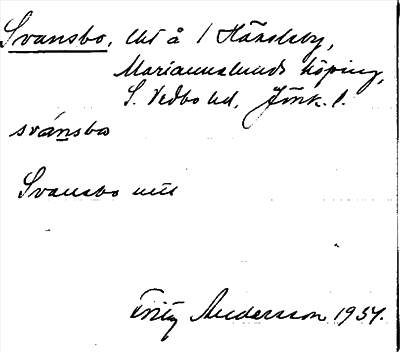 Svansbo, lht å 1 Hässleby,
Mariannelunds köping,
S. Vedbo hd, Jönk. l.
svánsbo
Svansbo
Fritz Andersson 1934.